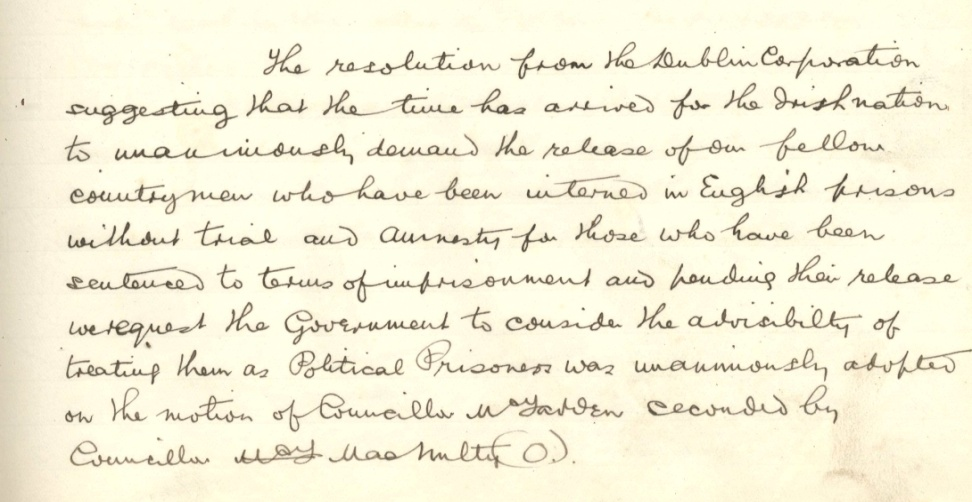 The resolution from the Dublin Corporation
suggesting that the time has arrived for the Irish nation
to unanimously demand the release of our fellow
countrymen who have been interned in English prisons
without trial and amnesty for those who have been
sentenced to terms of imprisonment and pending their release
we request the Government to consider the advisibilty of
treating them as Political Prisoners was unanimously adopted
on the motion of Councillor seconded by
Councillor (O).